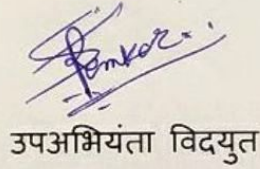 उपअभियंता विदयुत